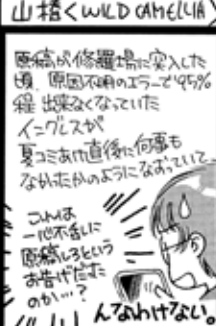 山橋<WILD CAMELLIA>
原稿が修羅場に突入した
頃、原因不明のエラーで95%
程 出来なくなっていた
イングレスが
夏コミあけ直後に何事も
なかったかのようになおっていて…
これは
一心不乱に
原稿しろという
お告げだった
のか…?
んなわけない。